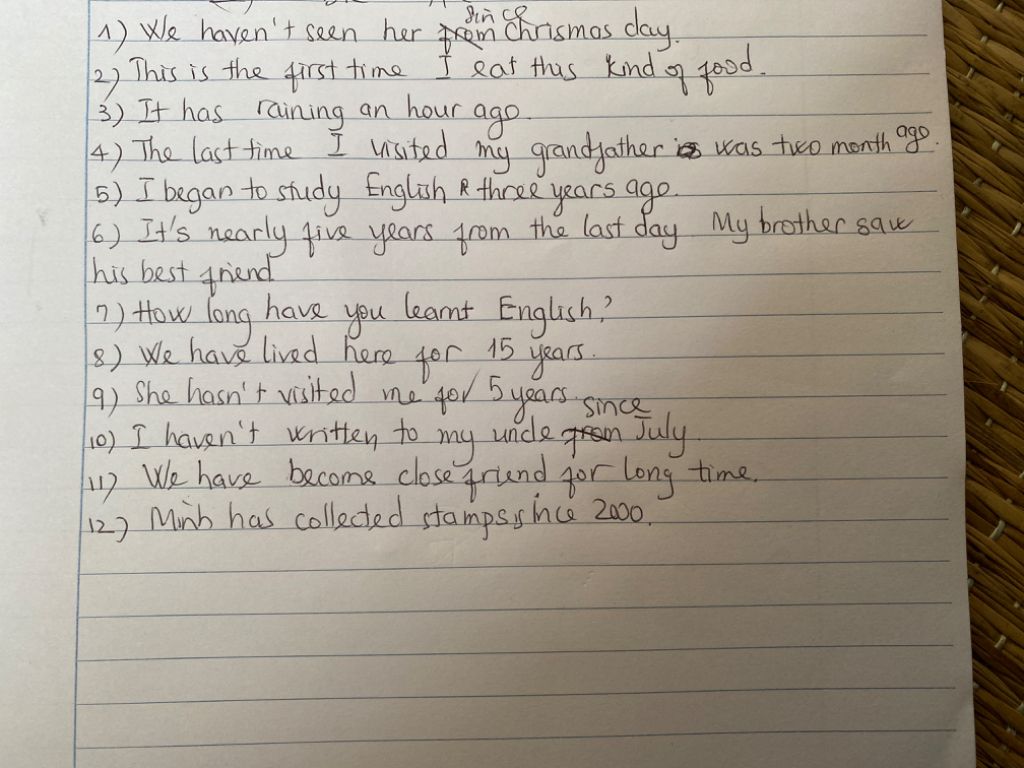 1) We haven't seen her since Chrismas day.
2) This is the first time I eat this kind of food.
3) It has raining an hour ago.
4) The last time I visited my grandfather was two month ago.
5) I began to study English three years ago.
6) It's nearly five years from the last day My brother saw
his best friend
7) How long have you learnt English?
8) We have lived here for 15 years.
9) She hasn't visited me for 5 years.
10) I haven't written to my uncle since July.
11) We have become close friend for long time.
12) Minh has collected stamps since 2000.